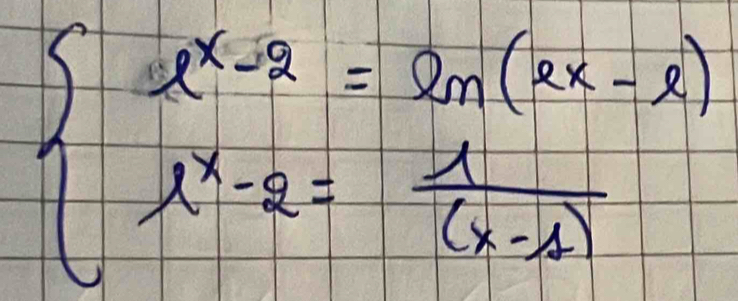 e^{x-2} = ln(ex - e)
e^{x-2} = \frac{1}{(x-1)}